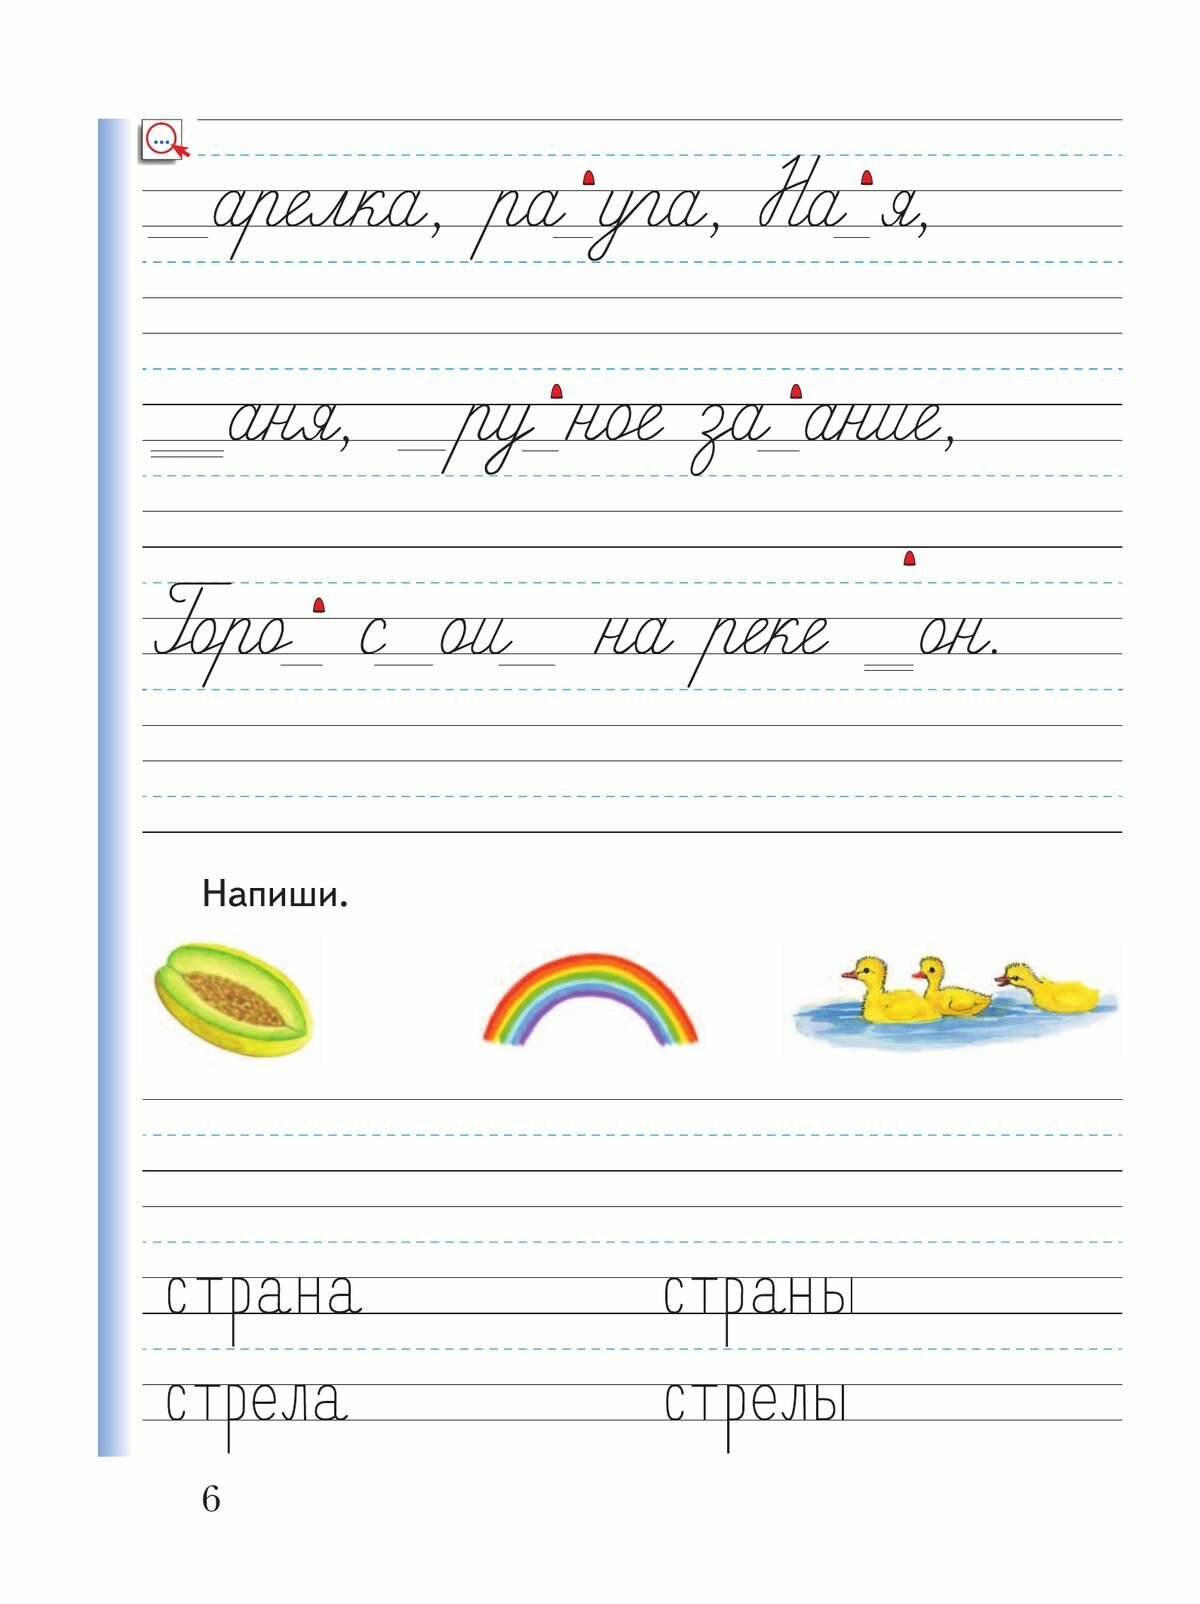 __арелка, ра__уга, На__я,
__аня, __ру__ное за__ание,
Горо__ с__ои__ на реке __он.
Напиши.
страна страны
стрела стрелы
6